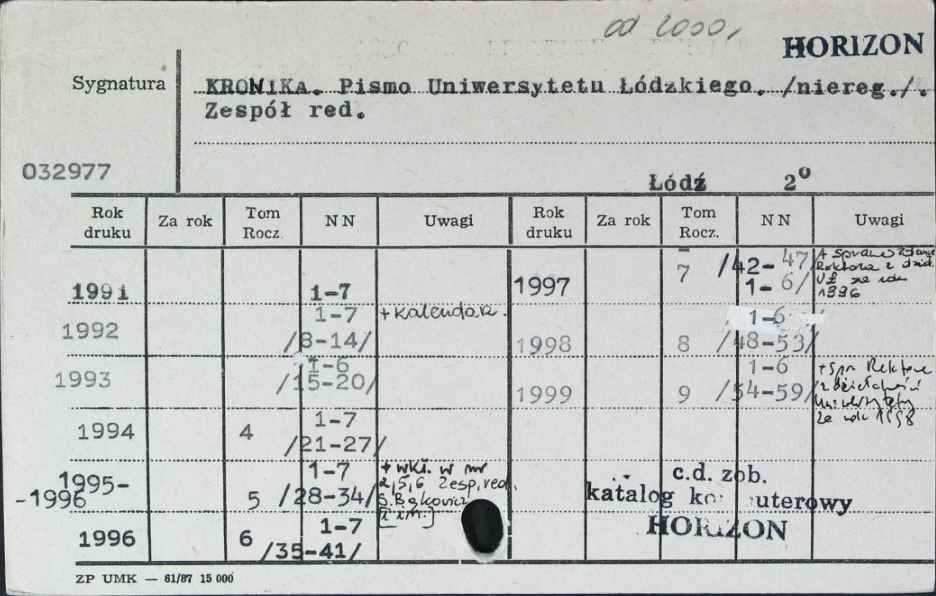 od 2000,
HORIZON
Sygnatura
KRONIKA. Pismo Uniwersytetu Łódzkiego. /niereg./.
Zespół red.
032977
Łódź 2°
Rok druku Za rok Tom Rocz. NN Uwagi Rok druku Za rok Tom Rocz. NN Uwagi
1991 1-7 1997 7 /42-47/ 1-6/ + sprawozdanie Rektora z dział. UŁ za rok 1996
1992 1-7 /8-14/ + kalendarz. 1998 8 1-6 /48-53/
1993 1-6 /15-20/ 1999 9 1-6 /54-59/ + spr. Rektora z działalności Uniwersytetu za rok 1998
1994 4 1-7 /21-27/
1995-
-1996 5 1-7 /28-34/ + wkł. w nr 2,5,6 Zesp. red. S. Bąkowicz [i in.]
1996 6 1-7 /35-41/
c.d. zob.
katalog ko uterowy
HORIZON
ZP UMK — 61/87 15 000